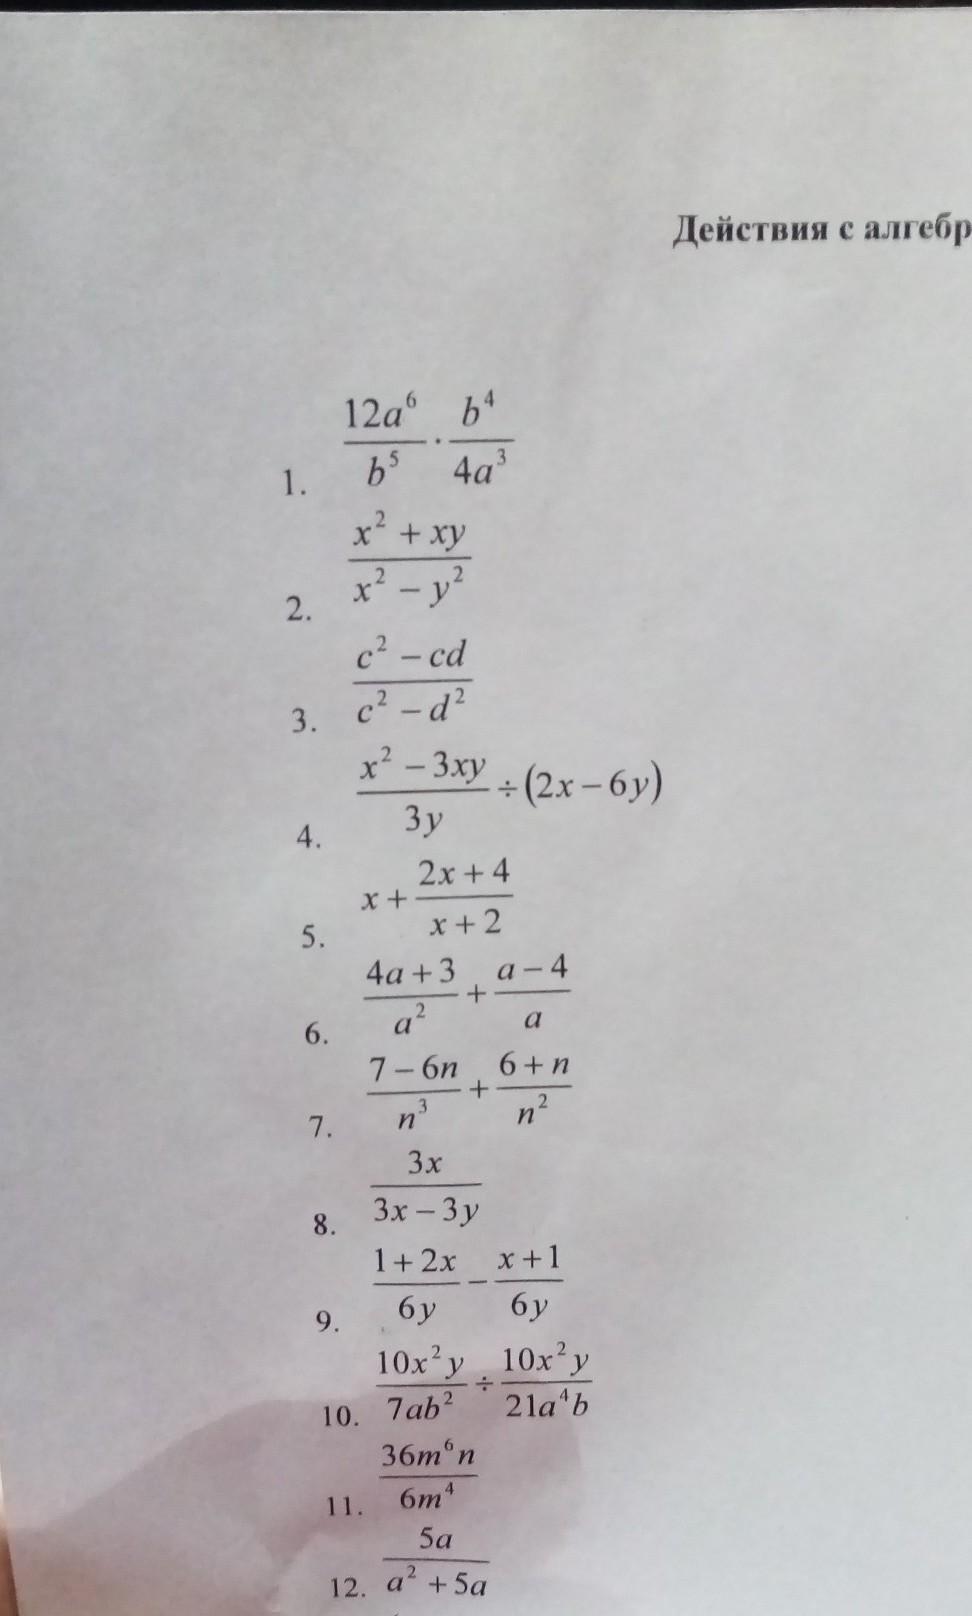 Действия с алгебр
1. \frac{12a^6}{b^5} \cdot \frac{b^4}{4a^3}
2. \frac{x^2 + xy}{x^2 - y^2}
3. \frac{c^2 - cd}{c^2 - d^2}
4. \frac{x^2 - 3xy}{3y} \div (2x - 6y)
5. x + \frac{2x + 4}{x + 2}
6. \frac{4a + 3}{a^2} + \frac{a - 4}{a}
7. \frac{7 - 6n}{n^3} + \frac{6 + n}{n^2}
8. \frac{3x}{3x - 3y}
9. \frac{1 + 2x}{6y} - \frac{x + 1}{6y}
10. \frac{10x^2y}{7ab^2} \div \frac{10x^2y}{21a^4b}
11. \frac{36m^6n}{6m^4}
12. \frac{5a}{a^2 + 5a}